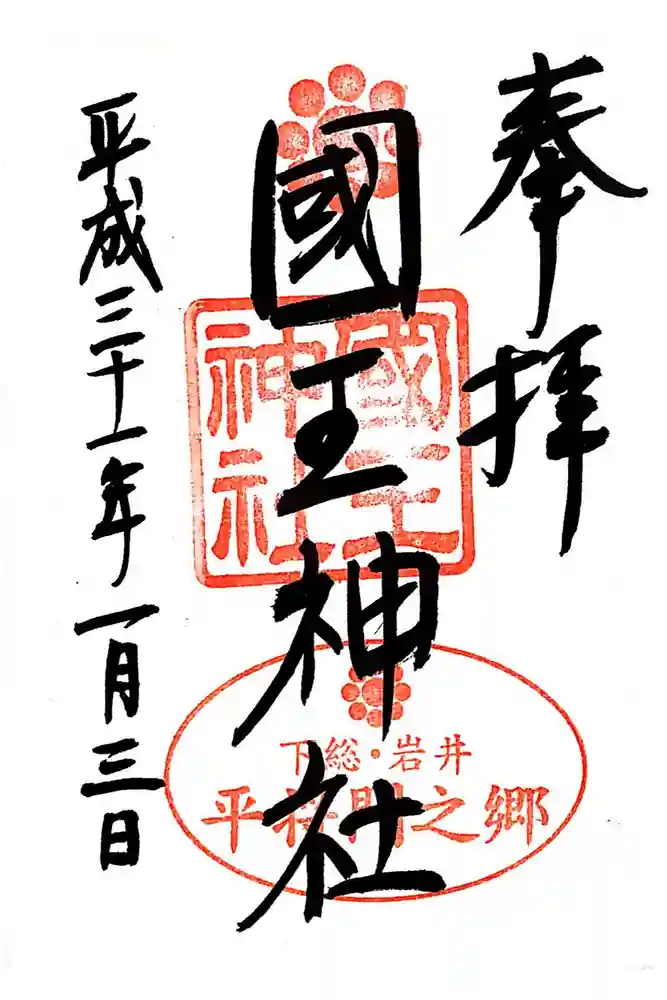 奉拝
國王神社
平成三十一年一月三日
國王
神社
下総・岩井
平将門之郷